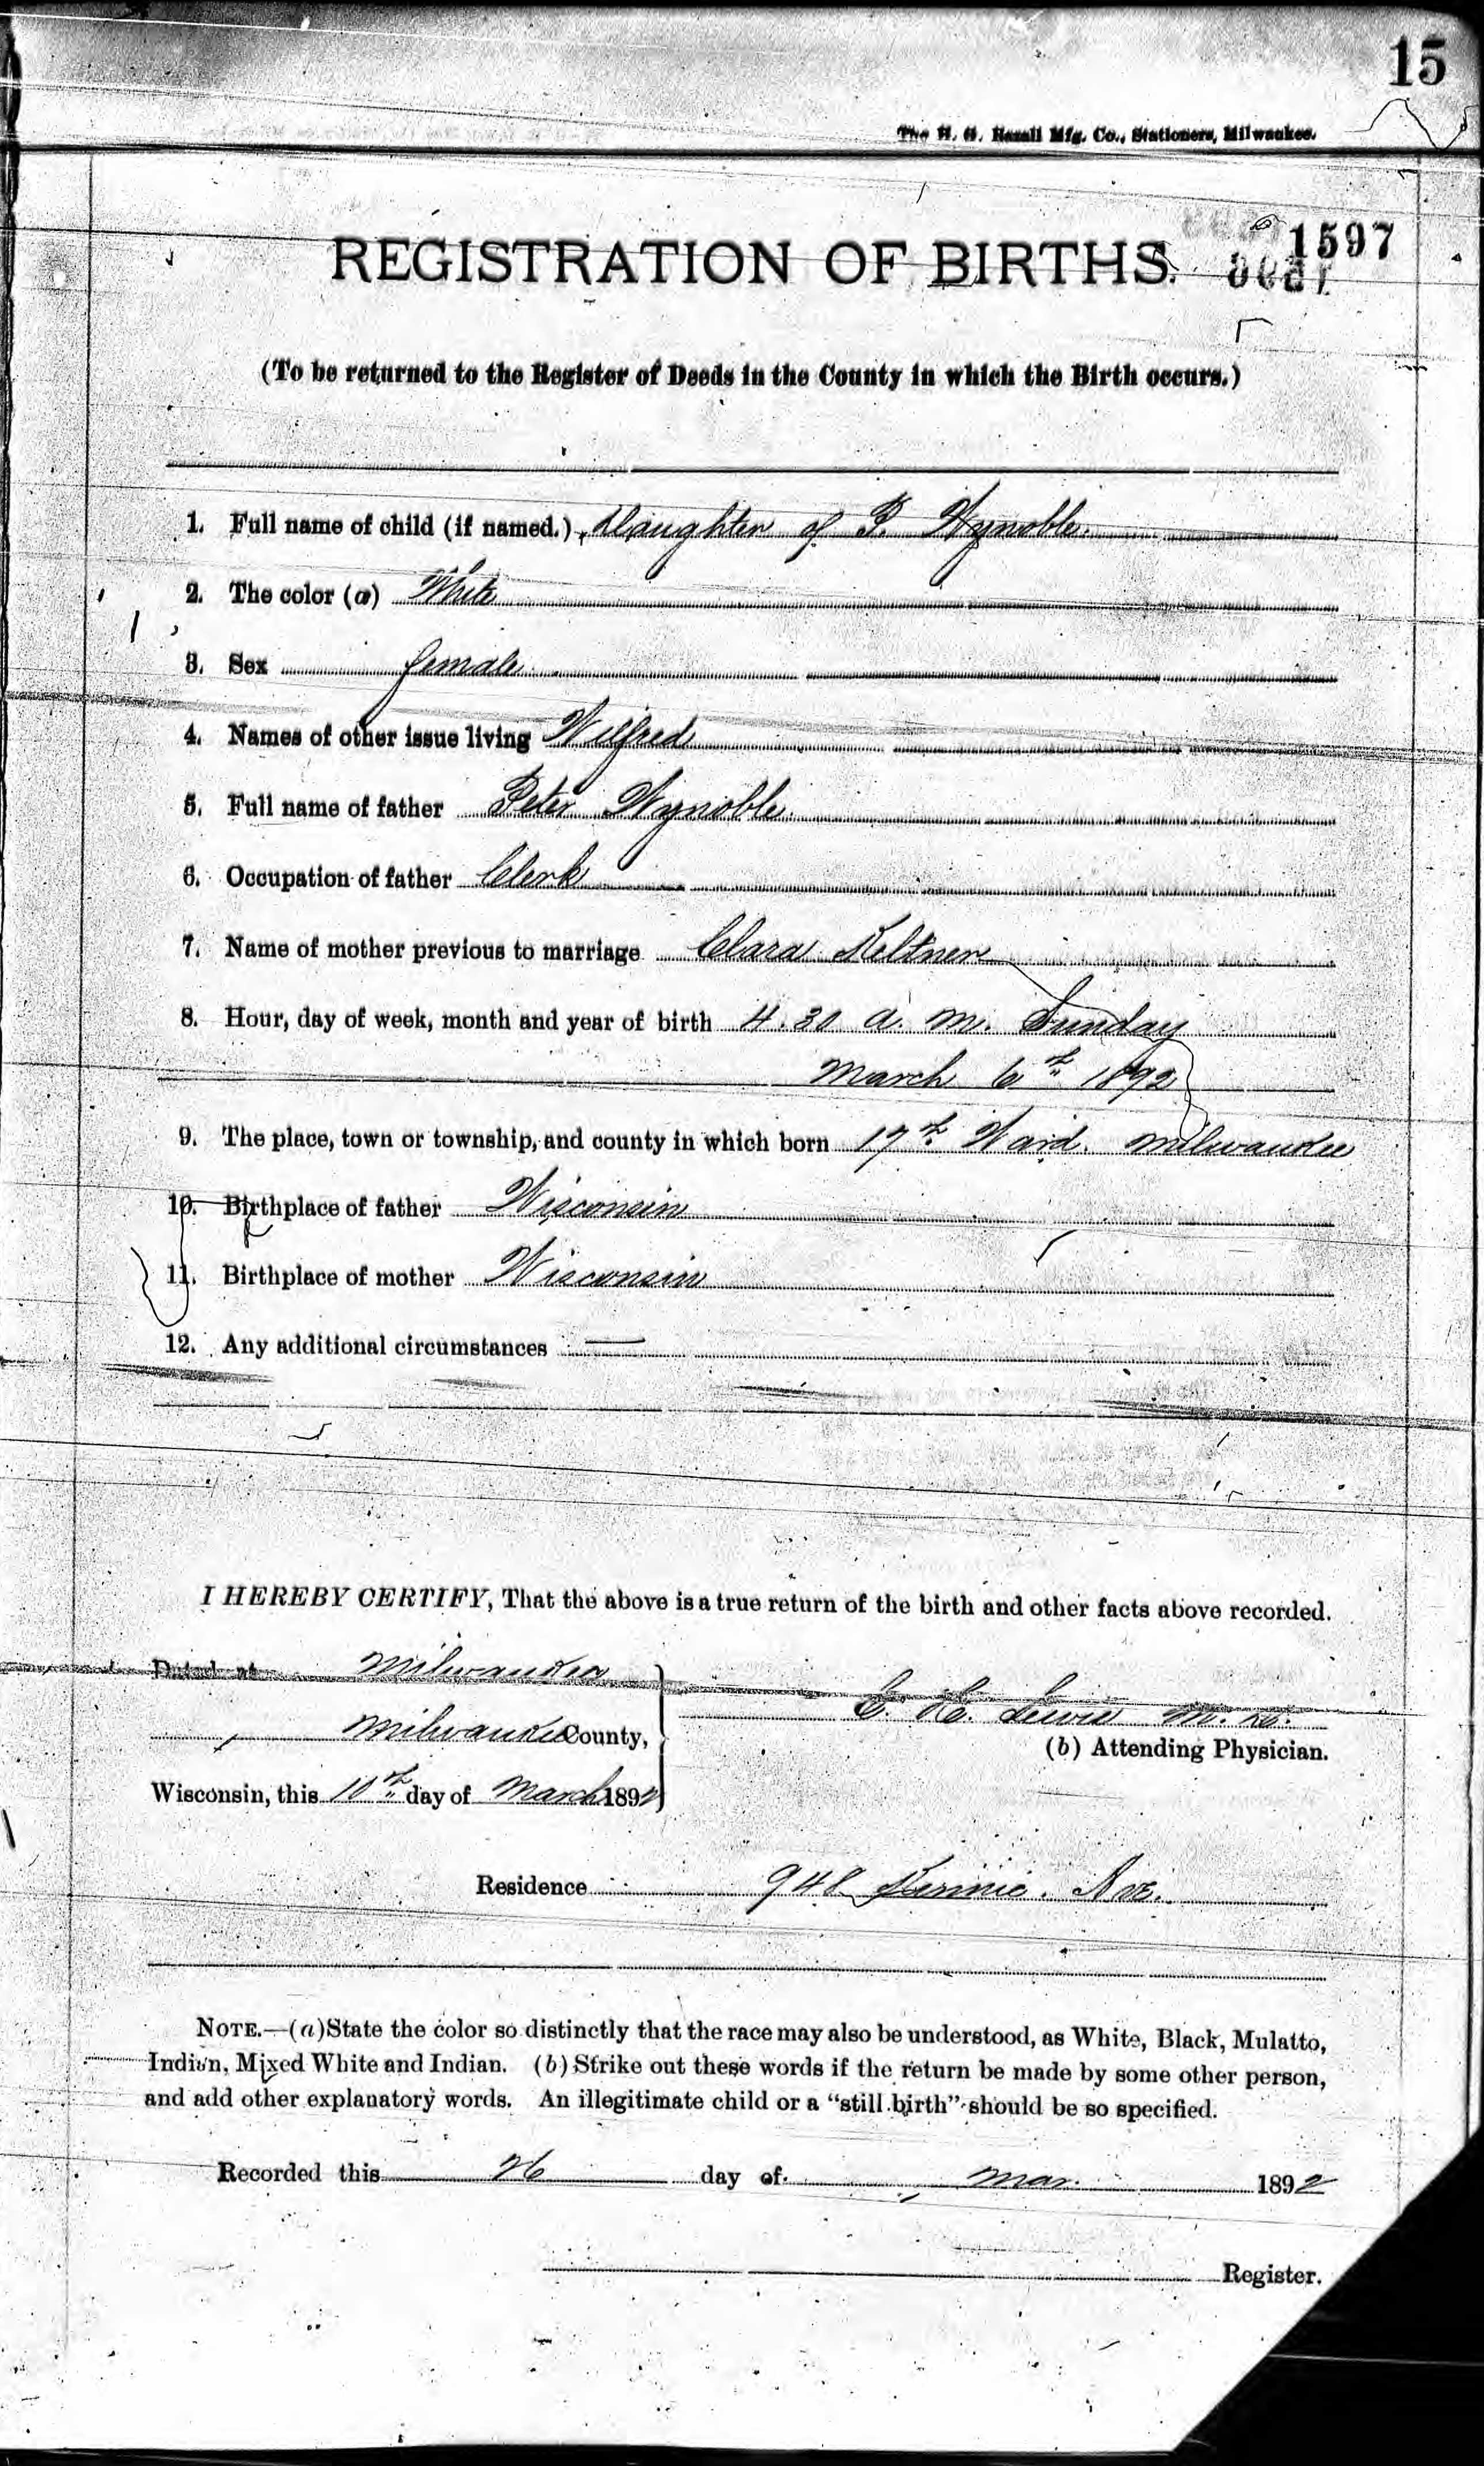 15
The H. H. Mfg. Co., Stationers, Milwaukee.
1597
REGISTRATION OF BIRTHS.
(To be returned to the Register of Deeds in the County in which the Birth occurs.)
1. Full name of child (if named.) Daughter of P. Wynoble.
2. The color (a) White
3. Sex female
4. Names of other issue living Wilfred
5. Full name of father Peter Wynoble.
6. Occupation of father Clerk
7. Name of mother previous to marriage Clara Keltner
8. Hour, day of week, month and year of birth 4.30 a. m. Sunday
March 6th 1892
9. The place, town or township, and county in which born 17th Ward. Milwaukee
10. Birthplace of father Wisconsin
11. Birthplace of mother Wisconsin
12. Any additional circumstances —
I HEREBY CERTIFY, That the above is a true return of the birth and other facts above recorded.
Dated at Milwaukee
Milwaukee County,
Wisconsin, this 10th day of March 1892
Lewis M. D.
(b) Attending Physician.
Residence Ave.
NOTE.—(a) State the color so distinctly that the race may also be understood, as White, Black, Mulatto,
Indian, Mixed White and Indian. (b) Strike out these words if the return be made by some other person,
and add other explanatory words. An illegitimate child or a "still birth" should be so specified.
Recorded this 26 day of Mar. 1892
Register.